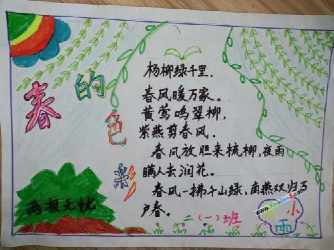 春的色彩
杨柳绿千里.
春风暖万家。
黄莺鸣翠柳,
紫燕剪春风.
春风放胆来梳柳,夜雨
瞒人去润花。
春风一拂千山绿,南燕双归万
户春。
二(一)班